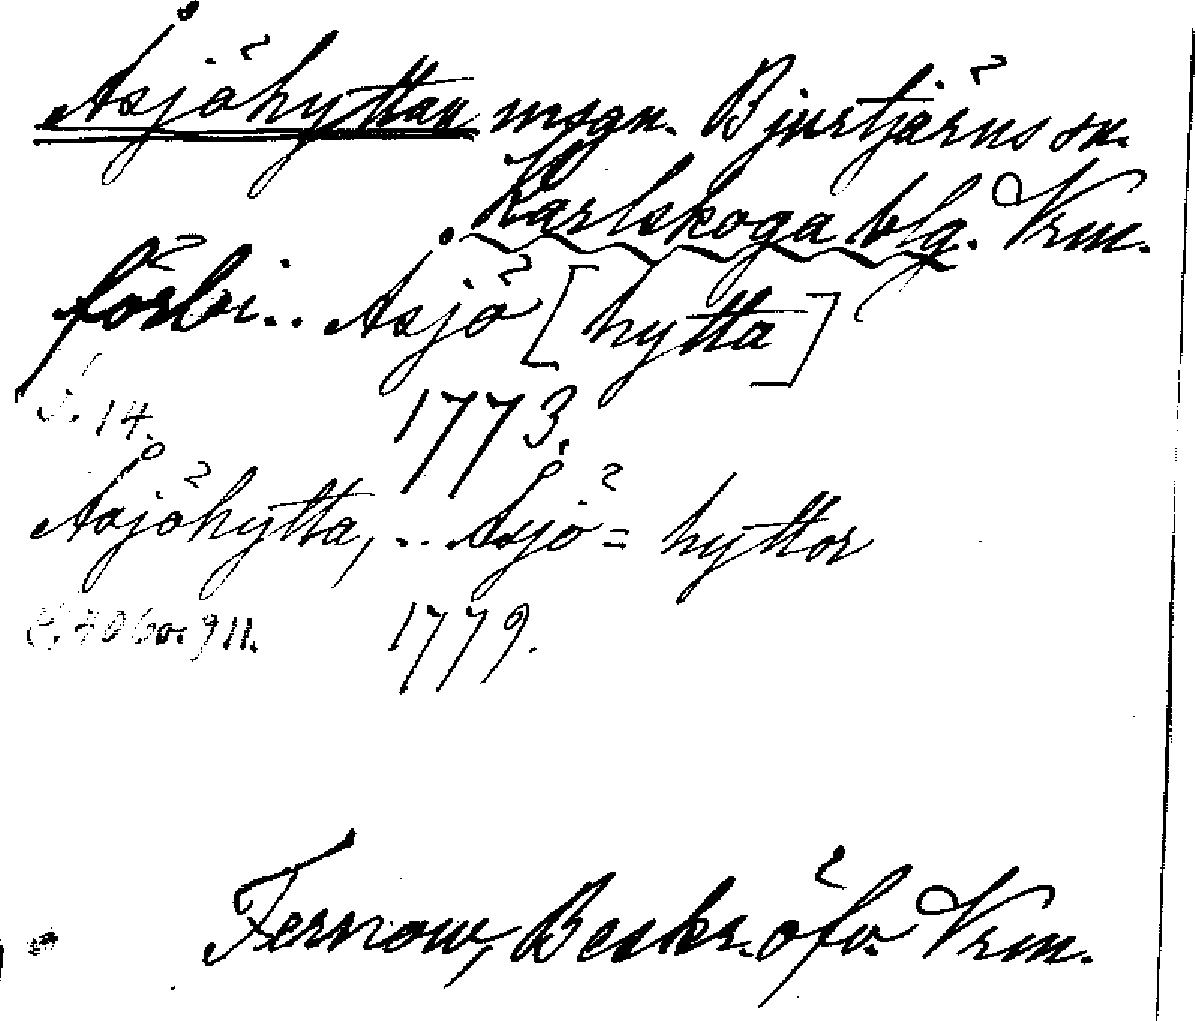 Åsjöhyttan msgn. Bjurtjärns sn.
Karlskoga blg. Vrm.
förbi.. Åsjö [hytta]
S. 14. 1773.
Åsjöhytta, .. Åsjö=hyttor
S. 706 o. 911. 1779.
Fernow, Beskr. öfv. Vrm.